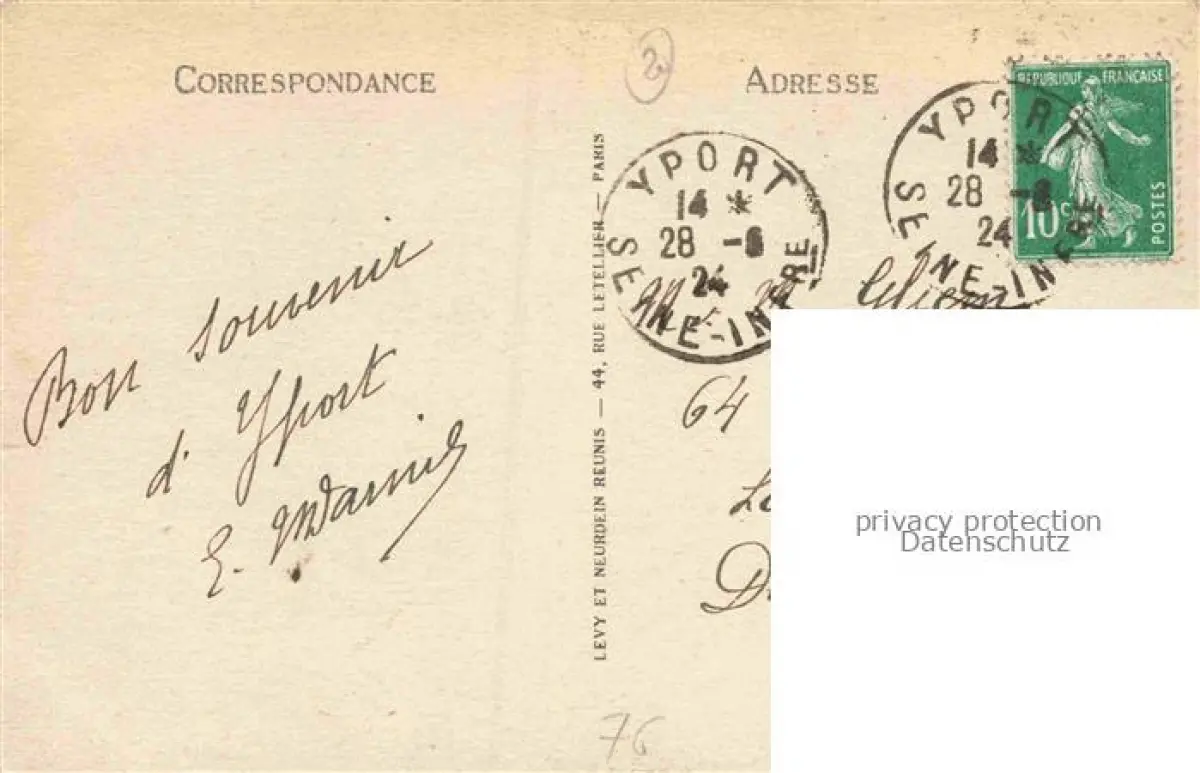 CORRESPONDANCE
2
ADRESSE
Bon souvenir
d' Yport
E.
LEVY ET NEURDEIN REUNIS — 44, RUE LETELLIER — PARIS
YPORT
14 *
28 -8
24
SEINE-INFRE
YPORT
14 *
28 -8
24
SEINE-INFRE
REPUBLIQUE FRANÇAISE
10c
POSTES
64
privacy protection
Datenschutz
76